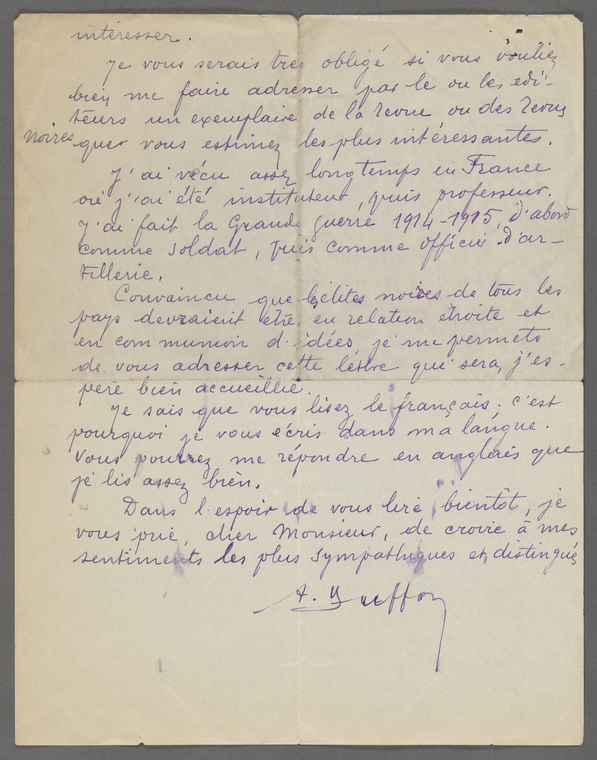 intéresser.
Je vous serais très obligé si vous vouliez
bien me faire adresser par le ou les edi-
teurs un exemplaire de la revue ou des revues
noires que vous estimez les plus intéressantes.
J'ai vécu assez longtemps en France
où j'ai été instituteur, puis professeur.
J'ai fait la Grande guerre 1914-1915, d'abord
comme soldat, puis comme officier d'ar-
tillerie.
Convaincu que les élites noires de tous les
pays devraient être en relation étroite et
en communion d'idées je me permets
de vous adresser cette lettre qui sera, j'es-
père bien accueillie.
Je sais que vous lisez le français; c'est
pourquoi je vous écris dans ma langue.
Vous pourrez me répondre en anglais que
je lis assez bien.
Dans l'espoir de vous lire bientôt, je
vous prie, cher Monsieur, de croire à mes
sentiments les plus sympathiques et distingués
A.